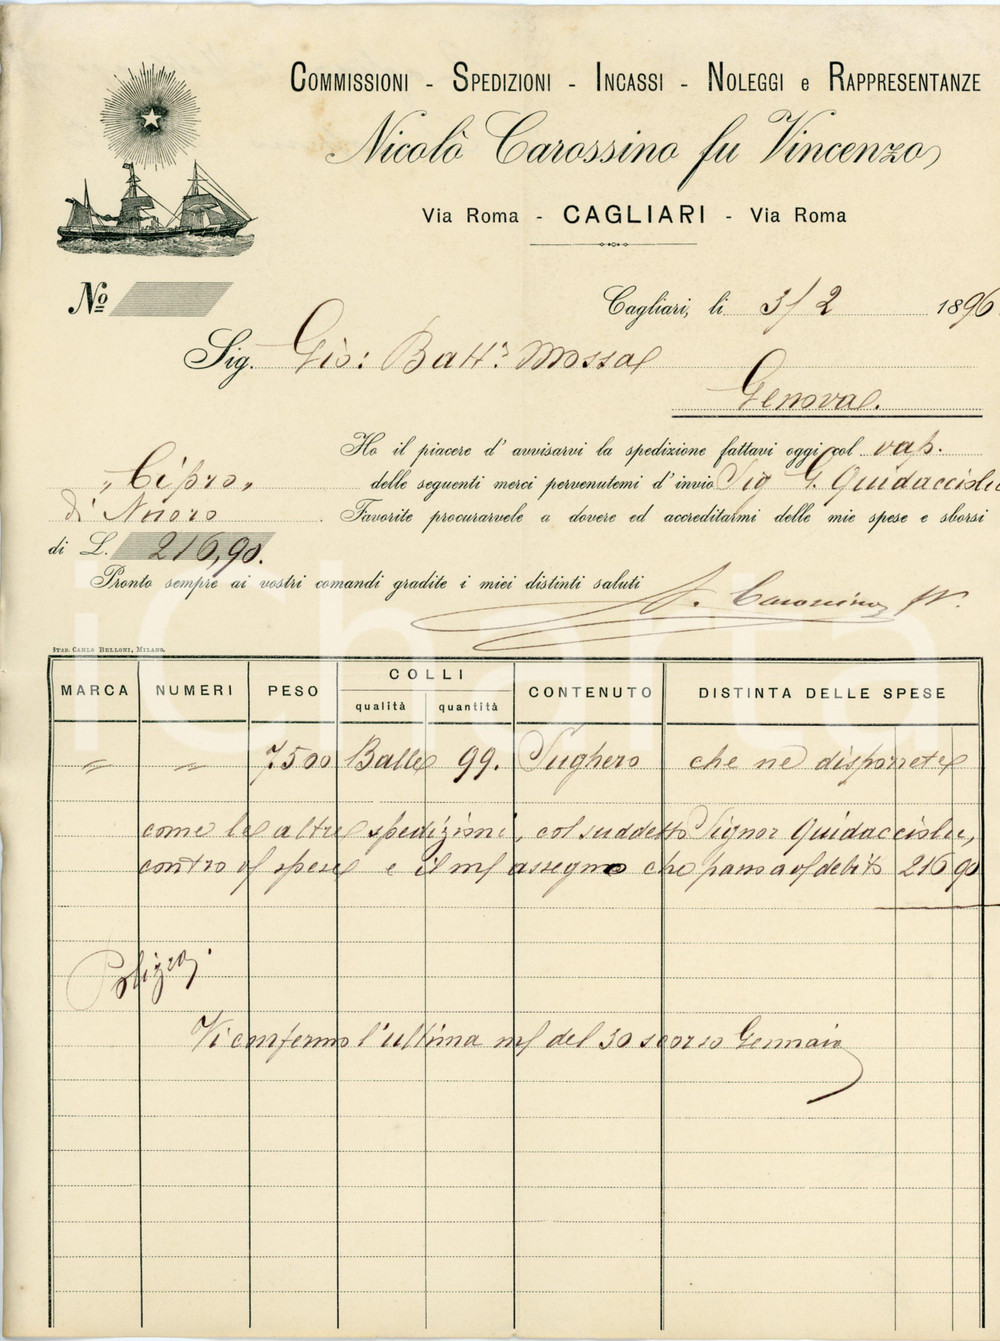 COMMISSIONI - SPEDIZIONI - INCASSI - NOLEGGI e RAPPRESENTANZE
Nicolò Carossino fu Vincenzo
Via Roma - CAGLIARI - Via Roma
No
Cagliari, li 3/2 1896
Sig. Gio: Batt.a Mossa
Genova.
Ho il piacere d'avvisarvi la spedizione fattavi oggi col vap.
„Cipro„ delle seguenti merci pervenutemi d'invio Sig G. Guidacciolu
di Nuoro Favorite procurarvele a dovere ed accreditarmi delle mie spese e sborsi
di L. 216,90.
Pronto sempre ai vostri comandi gradite i miei distinti saluti
N. Carossino fu V.
STAB. CARLO BELLONI, MILANO.
MARCA NUMERI PESO COLLI qualità quantità CONTENUTO DISTINTA DELLE SPESE
" " 7500 Balle 99. Sughero che ne disporrete
come le altre spedizioni, col suddetto Signor Guidacciolu,
contro s/ spese e il m/ assegno che passo a s/ debito 216 90
Polizza.
Vi confermo l'ultima m/ del 30 scorso Gennaio
iCharta